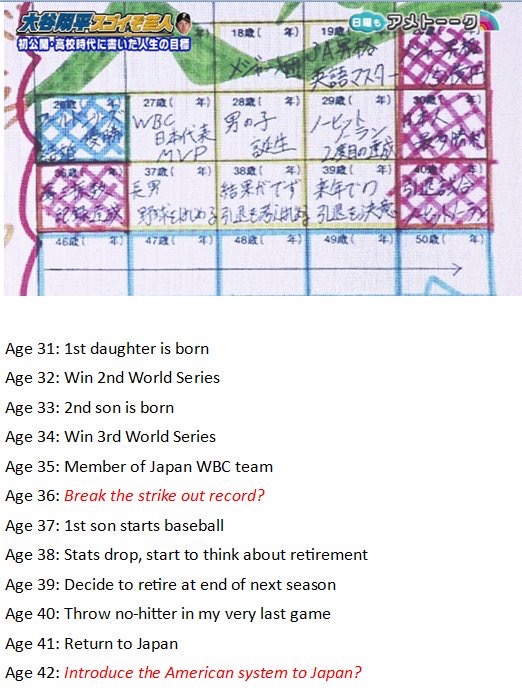 大谷翔平スゴイぞ芸人
日曜もアメトーーク
初公開・高校時代に書いた人生の目標
18歳( 年) 19歳
メジャー入団
英語マスター
26歳( 年) 27歳( 年) 28歳( 年) 29歳( 年)
ワールドシリーズ
優勝
結婚
WBC
日本代表
MVP
男の子
誕生
ノーヒット
ノーラン
2度目の達成
36歳( 年) 37歳( 年) 38歳( 年) 39歳( 年) 40歳( 年)
長男
野球をはじめる
結果がでず
引退を考えはじめる
来年での
引退を決意
引退試合
ノーヒットノーラン
46歳( 年) 47歳( 年) 48歳( 年) 49歳( 年) 50歳( 年)
Age 31: 1st daughter is born
Age 32: Win 2nd World Series
Age 33: 2nd son is born
Age 34: Win 3rd World Series
Age 35: Member of Japan WBC team
Age 36: Break the strike out record?
Age 37: 1st son starts baseball
Age 38: Stats drop, start to think about retirement
Age 39: Decide to retire at end of next season
Age 40: Throw no-hitter in my very last game
Age 41: Return to Japan
Age 42: Introduce the American system to Japan?